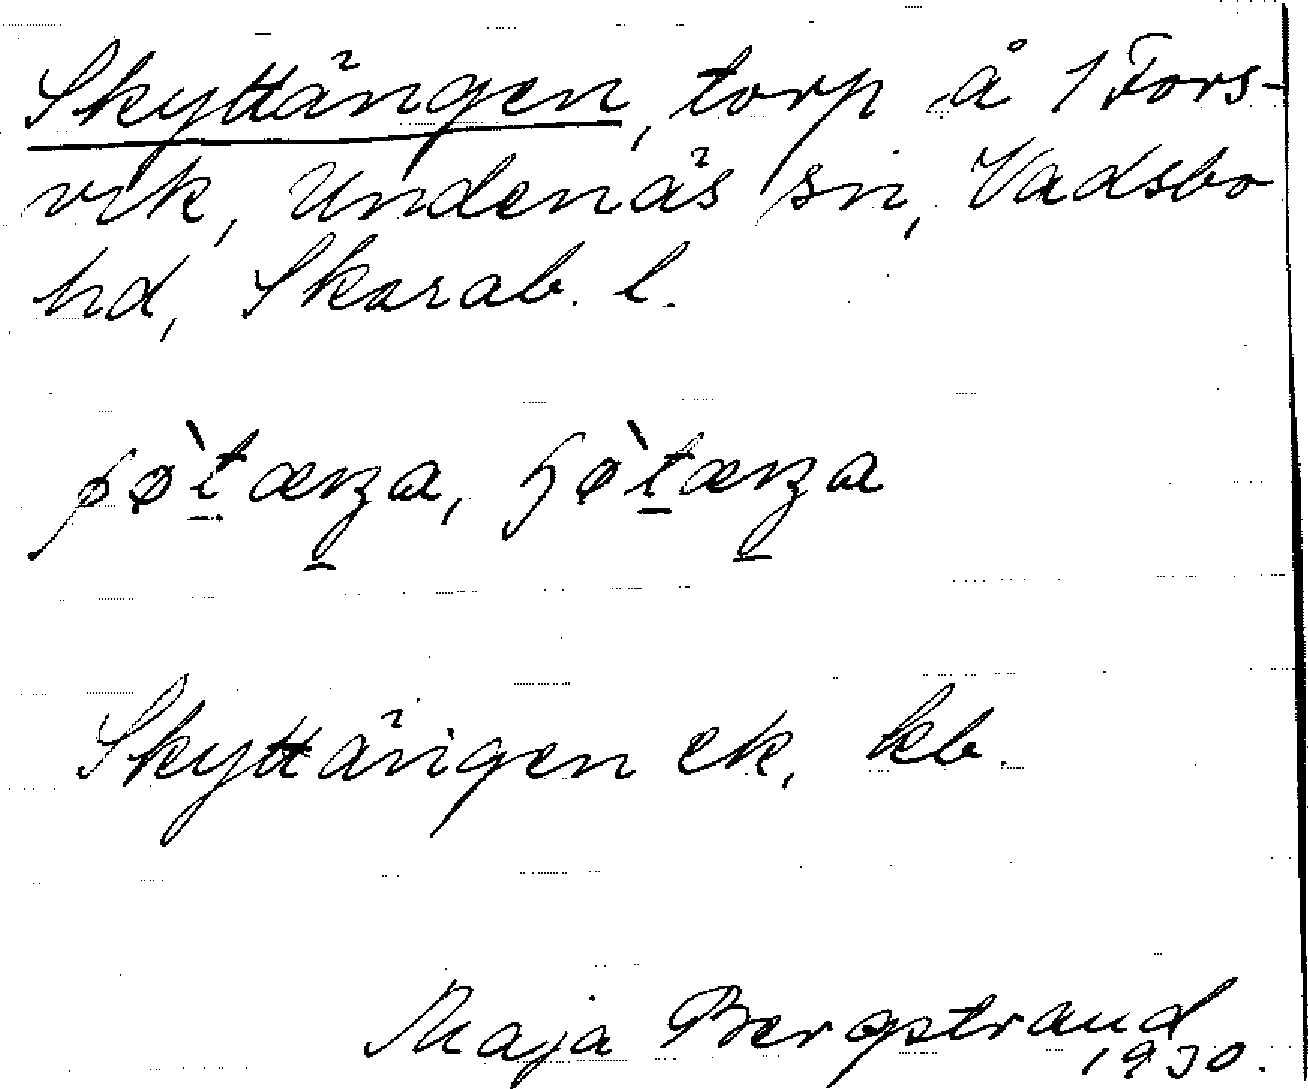 Skyttängen, torp å 1 Fors-
vik, Undenäs sn, Vadsbo
hd, Skarab. l.
Skyttängen ek, kb.
Maja Bergstrand
1930.